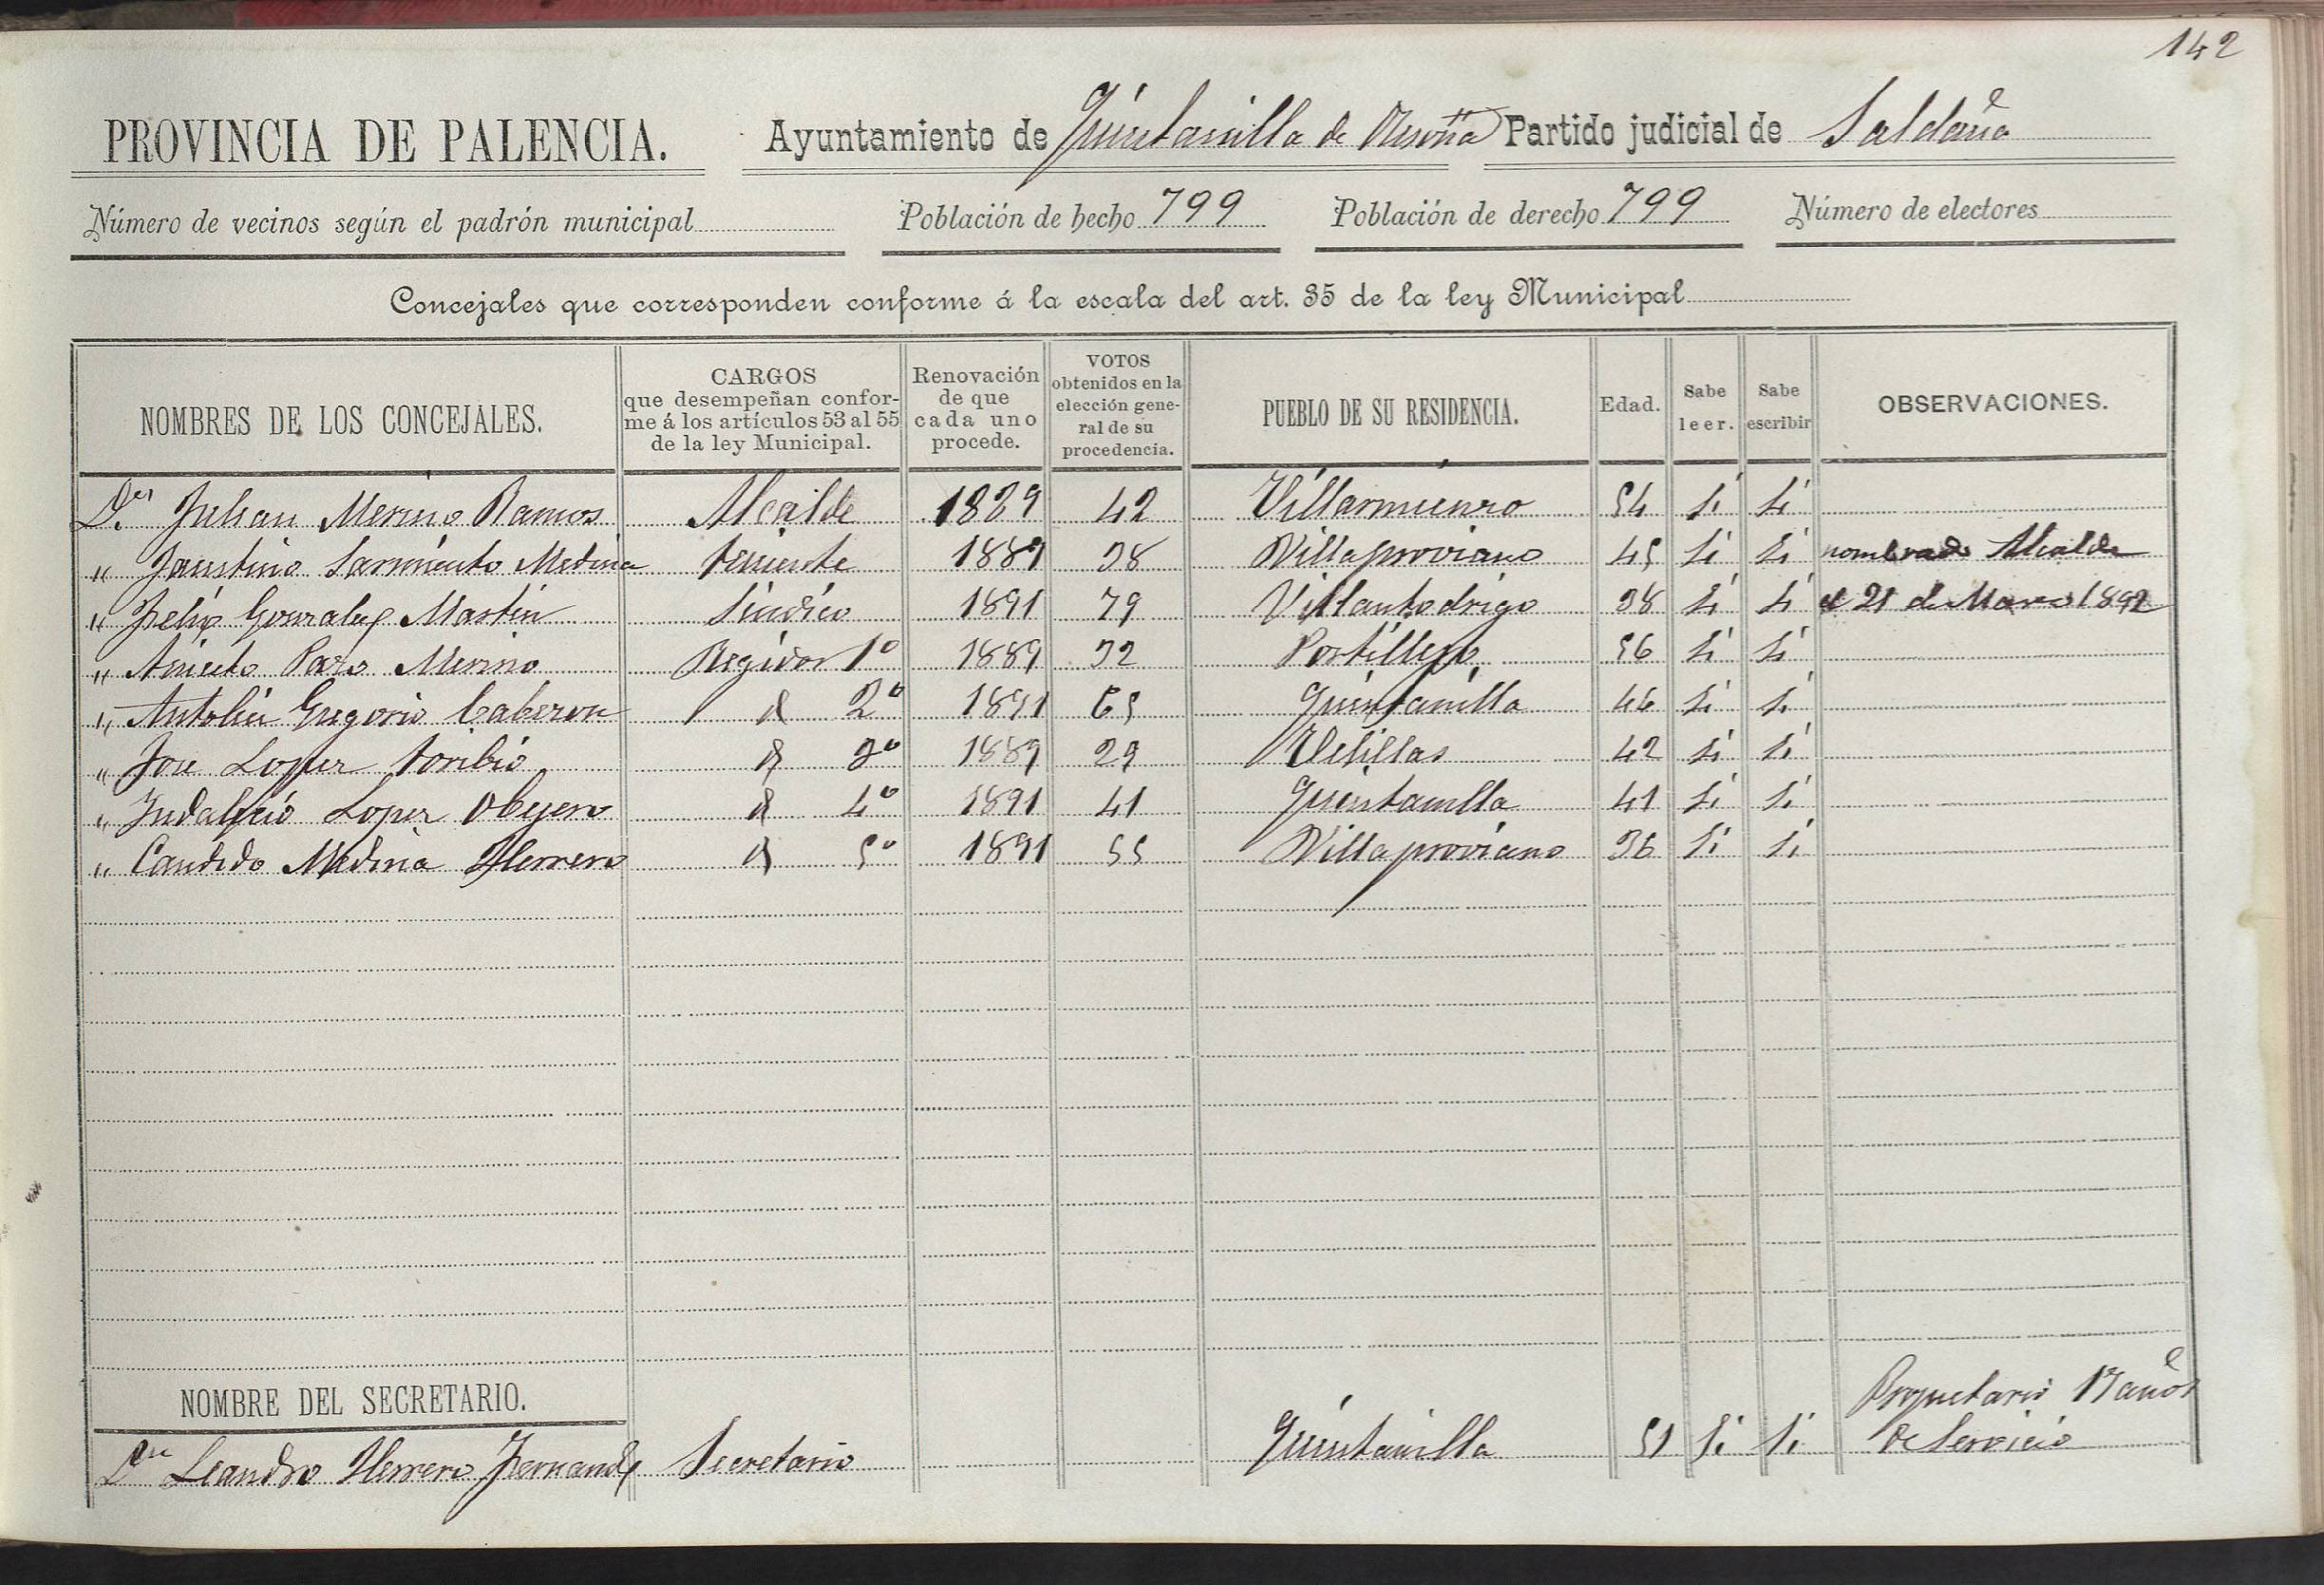 142
PROVINCIA DE PALENCIA. Ayuntamiento de Quintanilla de Onsoña Partido judicial de Saldaña
Número de vecinos según el padrón municipal Población de hecho 799 Población de derecho 799 Número de electores
Concejales que corresponden conforme á la escala del art. 35 de la ley Municipal
NOMBRES DE LOS CONCEJALES. CARGOS que desempeñan conforme á los artículos 53 al 55 de la ley Municipal. Renovación de que cada uno procede. VOTOS obtenidos en la elección general de su procedencia. PUEBLO DE SU RESIDENCIA. Edad. Sabe leer. Sabe escribir OBSERVACIONES.
Dn Julian Merino Ramos Alcalde 1889 42 Villarmienzo 54 Si Si
" Faustino Sarmiento Medina Teniente 1889 38 Villaproviano 45 Si Si nombrado Alcalde
" Felix Gonzalez Martin Sindico 1891 79 Villantodrigo 38 Si Si el 21 de Marzo 1892
" Aniceto Pazo Merino Regidor 1º 1889 32 Portillejo 56 Si Si
" Antolin Gregorio Caberon 2º 1891 65 Quintanilla 46 Si Si
" Jose Lopez Toribio 3º 1889 29 Velillas 42 Si Si
" Indalecio Lopez Obejero 4º 1891 41 Quintanilla 41 Si Si
" Candido Medina Herrero 5º 1891 55 Villaproviano 36 Si Si
NOMBRE DEL SECRETARIO.
Dn Leandro Herrero Fernandz Secretario Quintanilla 51 Si Si Propietario 17 años de Servicio